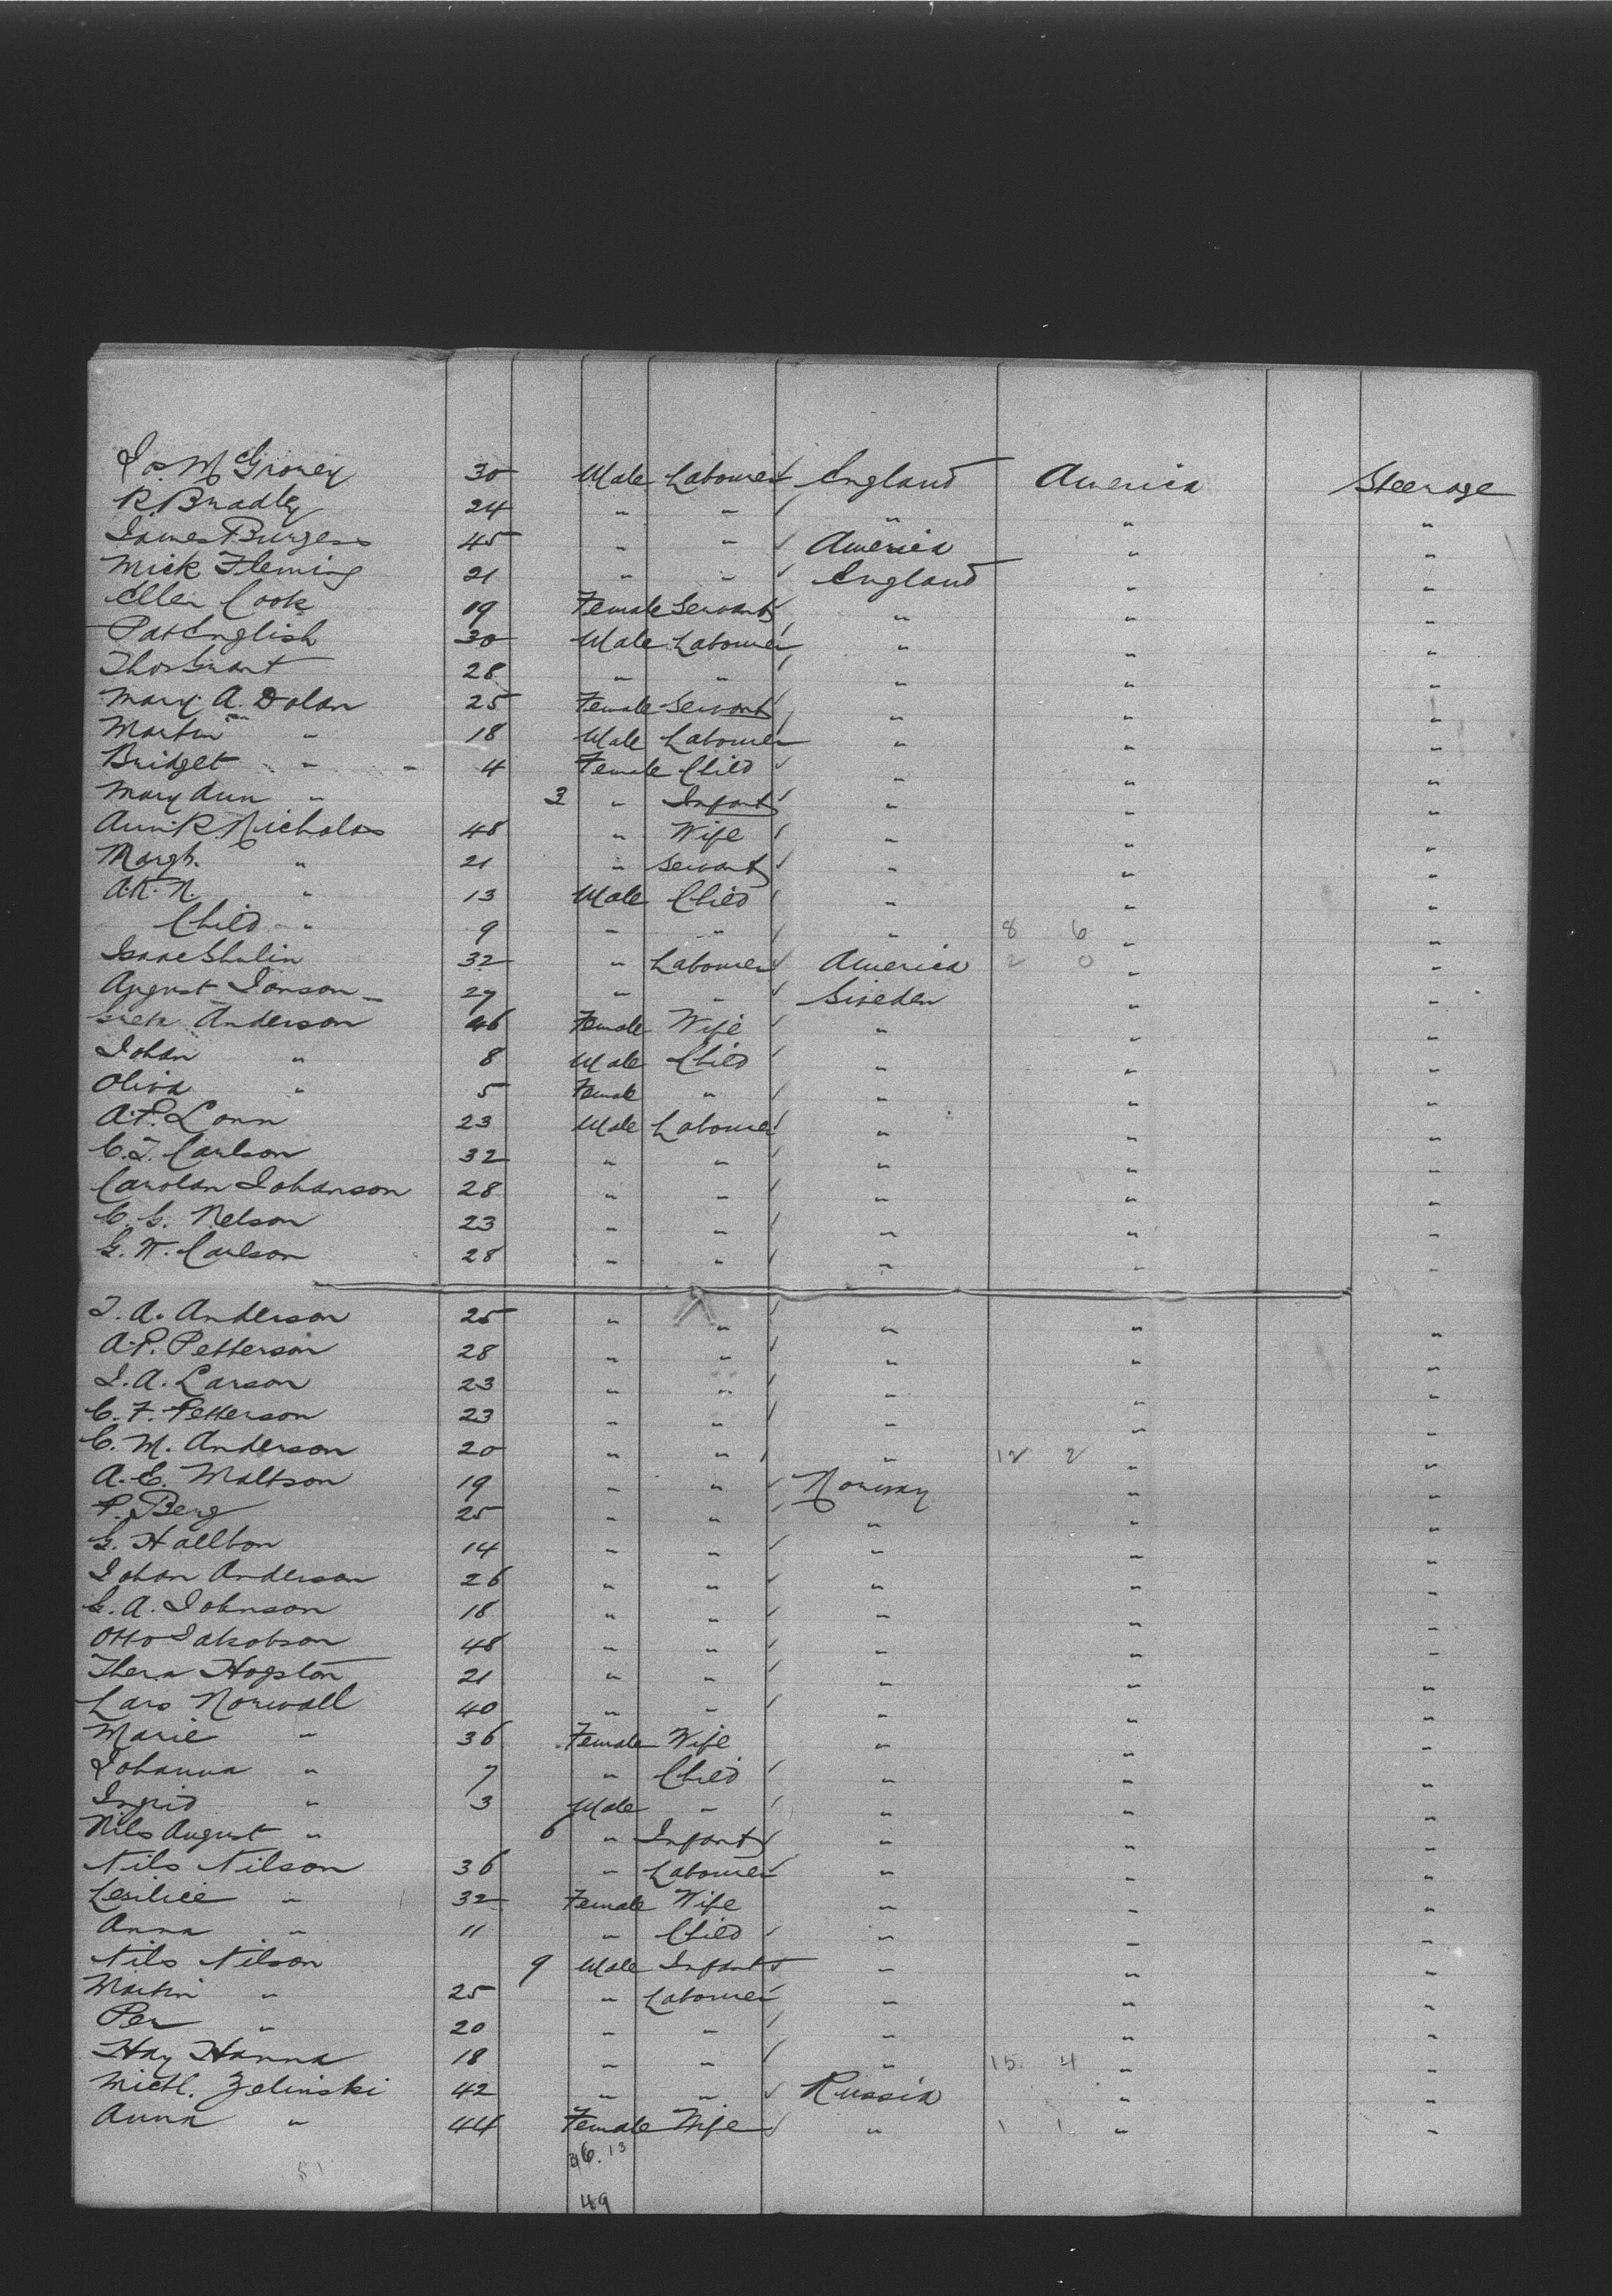 Jos. McGroney 30 Male Labourer England America Steerage
R. Bradley 24 " " " " "
James Burgess 45 " " America " "
Mick Fleming 21 " " England " "
Ellen Cook 19 Female Servant " " "
Pat English 30 Male Labourer " " "
Thos Grant 28 " " " " "
Mary A. Dolan 25 Female Servant " " "
Martin " 18 Male Labourer " " "
Bridget " 4 Female Child " " "
Mary Ann " 3 " Infant " " "
Ann R. Nicholas 48 " Wife " " "
Margh. " 21 " Servant " " "
A.R.N. " 13 Male Child " " "
Child " 9 " " " 8 6 " "
Isaac Shulin 32 " Labourer America 2 0 " "
August Jonson 27 " " Sweden " "
Greta Anderson 46 Female Wife " " "
Johan " 8 Male Child " " "
Oliva " 5 Female " " " "
A.P. Lonn 23 Male Labourer " " "
C.J. Carlson 32 " " " " "
Carolan Johanson 28 " " " " "
C.G. Nelson 23 " " " " "
G.W. Carlson 28 " " " " "
J.A. Anderson 25 " " " " "
A.P. Petterson 28 " " " " "
J.A. Larson 23 " " " " "
C.F. Petterson 23 " " " " "
C.M. Anderson 20 " " " 12 2 " "
A.E. Maltson 19 " " Norway " "
P. Berg 25 " " " " "
G. Hallbon 14 " " " " "
Johan Anderson 26 " " " " "
G.A. Johnson 18 " " " " "
Otto Jakobson 48 " " " " "
Thera Hogston 21 " " " " "
Lars Norwall 40 " " " " "
Marie " 36 Female Wife " " "
Johanna " 7 " Child " " "
Ingrid " 3 Male " " " "
Nils August " 6 " Infant " " "
Nils Nilson 36 " Labourer " " "
" 32 Female Wife " " "
Anna " 11 " Child " " "
Nils Nilson 9 Male Infant " " "
Martin " 25 " Labourer " " "
Per " 20 " " " " "
Hay Hanna 18 " " " 15. 4 " "
Michl. Zelinski 42 " " Russia " "
Anna " 44 Female Wife " 1 1 " "
36. 13
51
49